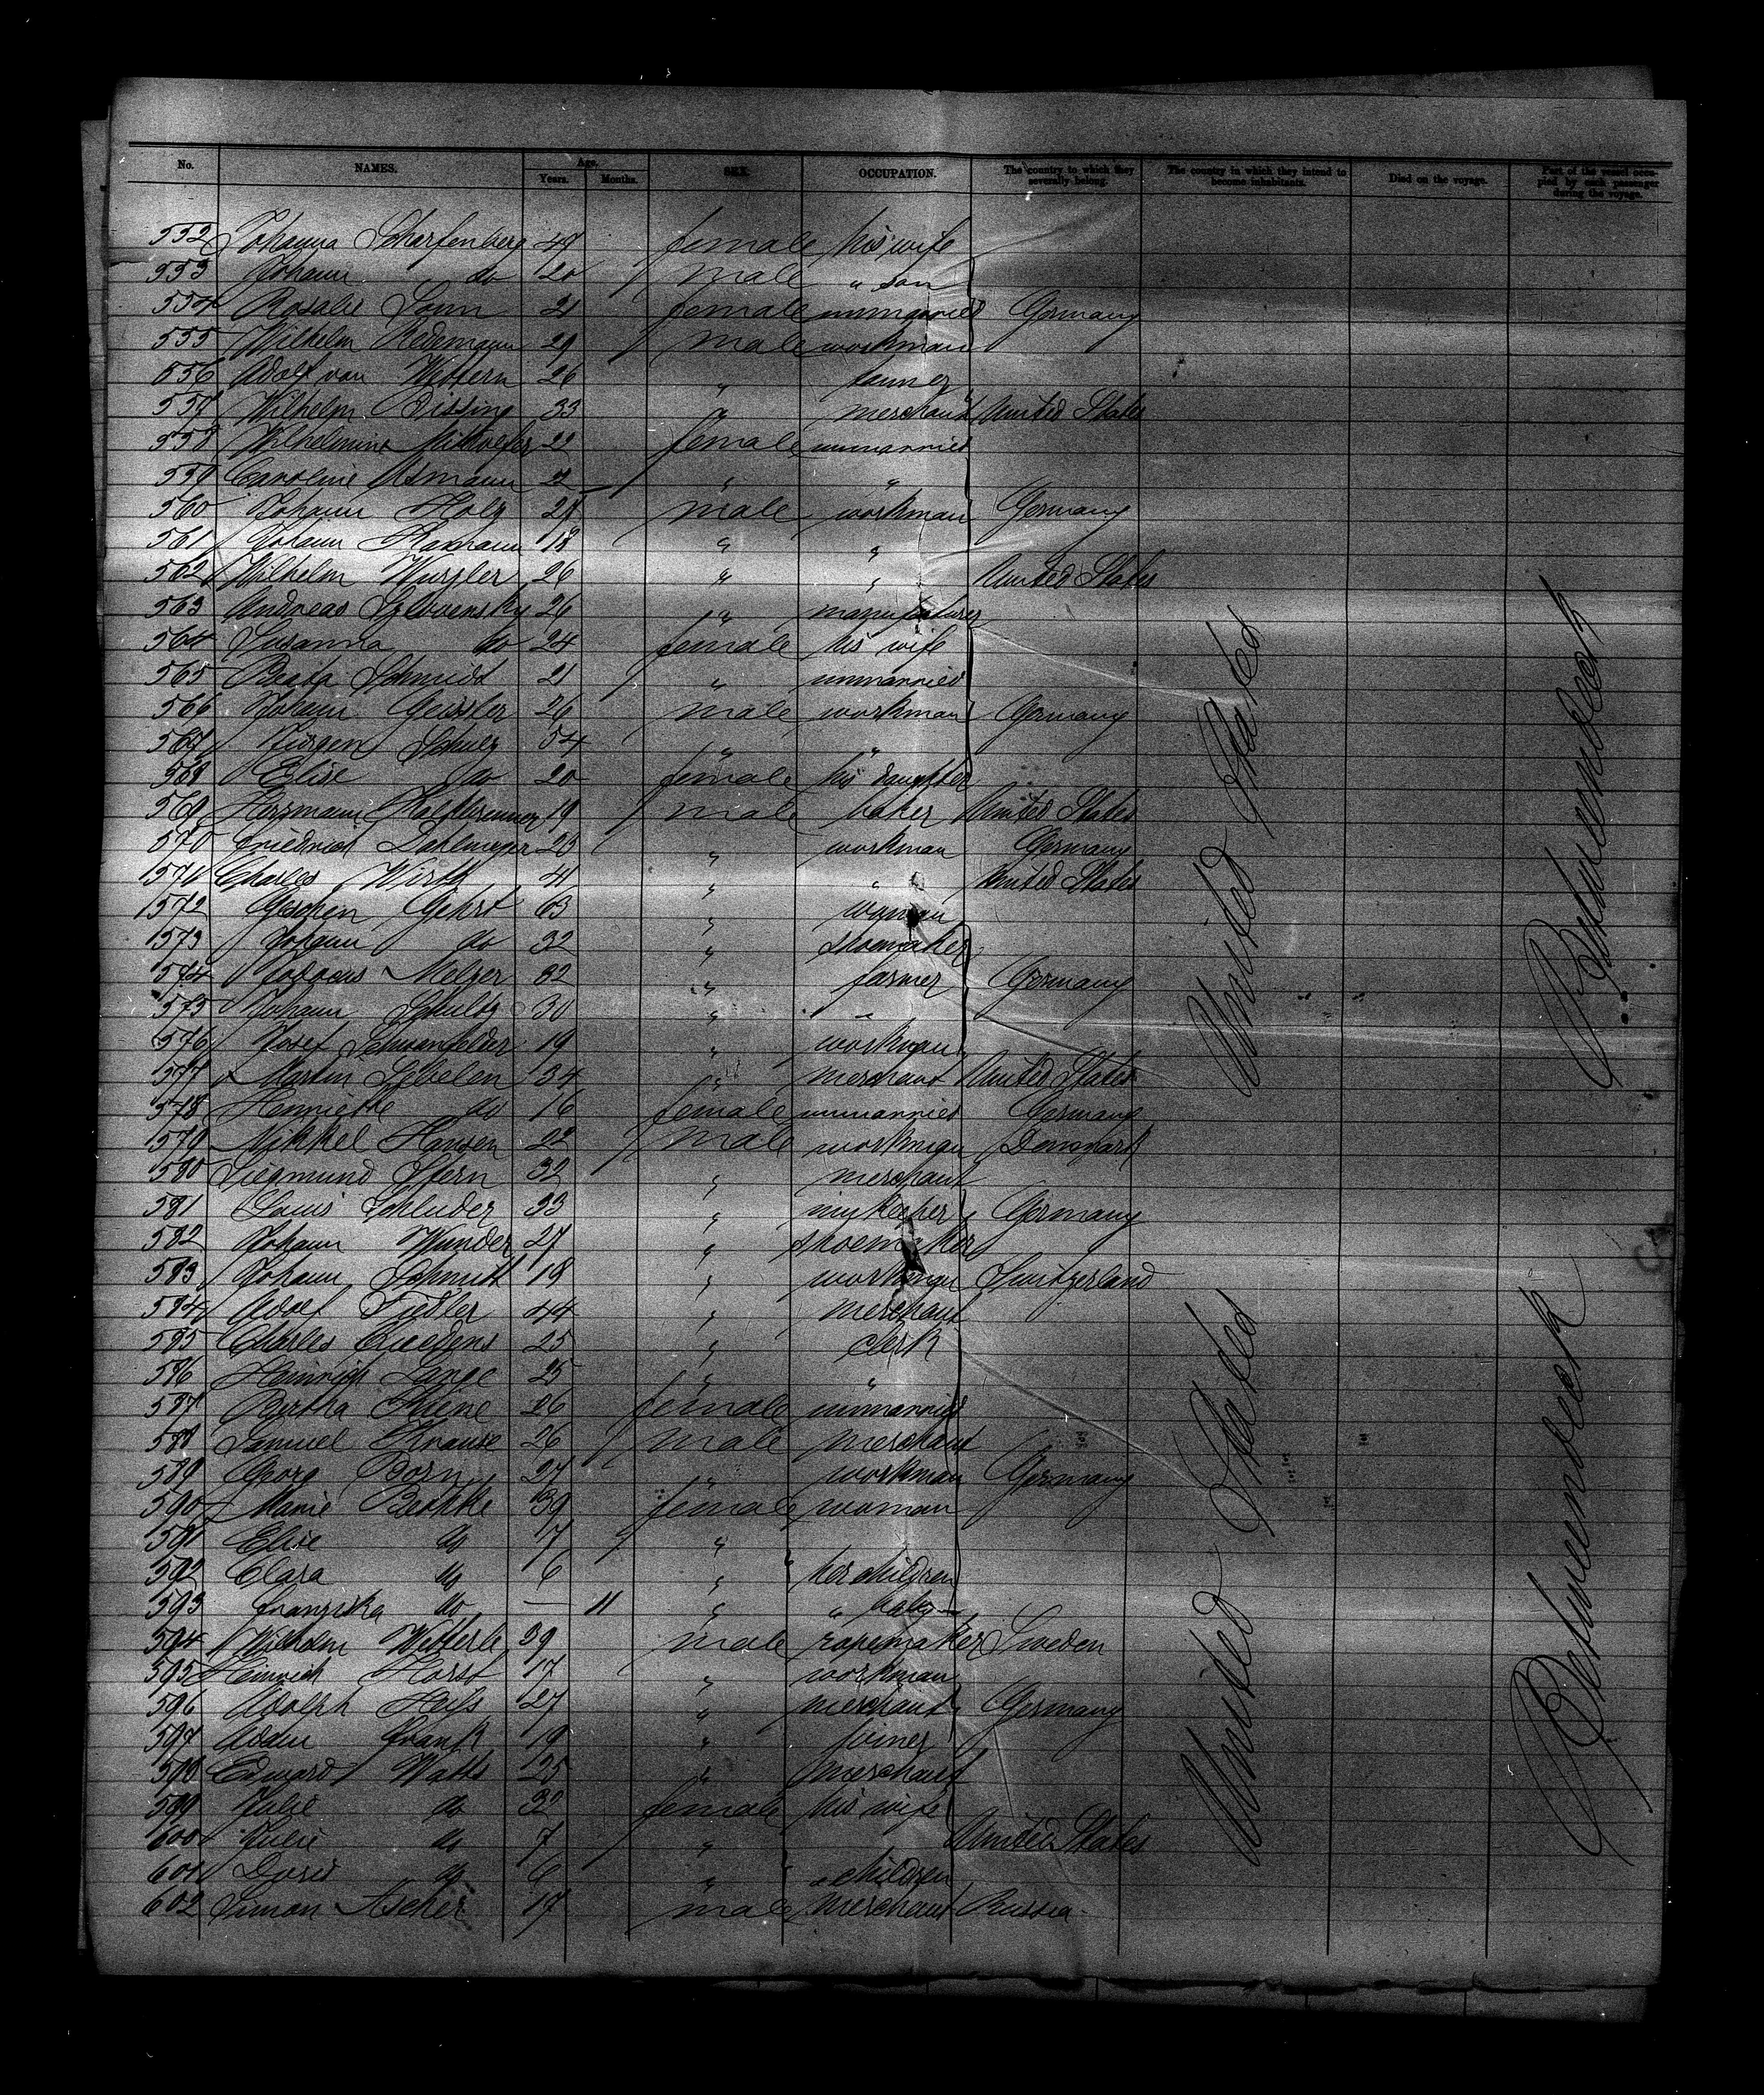 No. NAMES. Age. Years. Months. SEX. OCCUPATION. The country to which they severally belong. The country in which they intend to become inhabitants. Died on the voyage. Part of the vessel occupied by each passenger during the voyage.
552 Johanna Scharfenberg 49 female his wife
553 Johann do 20 male " son
554 Rosalie Sonn 21 female unmarried Germany
555 Wilhelm Redemann 29 male workman
556 Adolf van Wettern 26 "
557 Wilhelm Bissing 33 " merchant United States
558 Wilhelmine 22 female unmarried
559 Caroline Asmann 2 " "
560 Johann Holz 28 male workman Germany
561 Johann 18 " "
562 Wilhelm Wurzler 26 " " United States
563 Andreas 26 " manufacturer
564 Susanna do 24 female his wife
565 Beata Schmidt 21 " unmarried
566 Johann Geissler 26 male workman Germany
567 Jürgen Schulz 54 " "
568 Elise do 20 female his daughter
569 Herrmann 19 male baker United States
570 Friedrich Dahlmeyer 23 " workman Germany
571 Charles Wirth 41 " " United States
572 Geschen Gehrt 63 " woman
573 Johann do 32 " shoemaker
574 Melzer 32 " farmer Germany
575 Johann Schultz 30 " "
576 Josef Schwanfelder 19 " workman
577 Martin Sibelen 34 " merchant United States
578 Henriette do 16 female unmarried Germany
579 Nikkel Hansen 22 male workman Denmark
580 Siegmund Stern 32 " merchant
581 Louis Schluder 33 " innkeeper Germany
582 Johann Wunder 27 " shoemaker
583 Johann Schmidt 18 " workman Switzerland
584 Adolf Fiedler 44 " merchant
585 Charles 25 " clerk
586 Heinrich Lange 25 " "
587 Bertha Thiene 26 female unmarried
588 Samuel Krause 26 male merchant
589 Georg Born 27 " workman Germany
590 Marie Bethke 39 female woman
591 Elise do 7 "
592 Clara do 6 " her children
593 Franziska do — 11 " " baby
594 Wilhelm Wetterle 39 male ropemaker Sweden
595 Heinrich Horst 17 " workman
596 Adolph 27 " merchant Germany
597 Adam Frank 19 " joiner
598 Edward Watts 25 " merchant
599 Julie do 32 female his wife
600 Julie do 7 " United States
601 Doris do 6 " " children
602 Simon Ascher 17 male merchant Russia
United States
United States
Betweendeck
Betweendeck